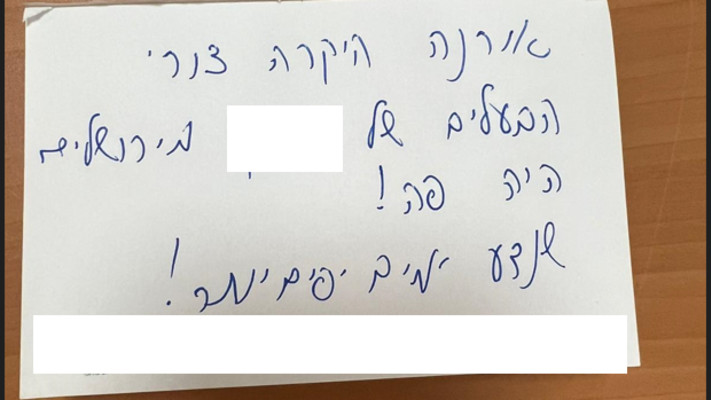 אורנה היקרה צורי
הבעלים של מירושלים
היה פה!
שנדע ימים יפים יותר!